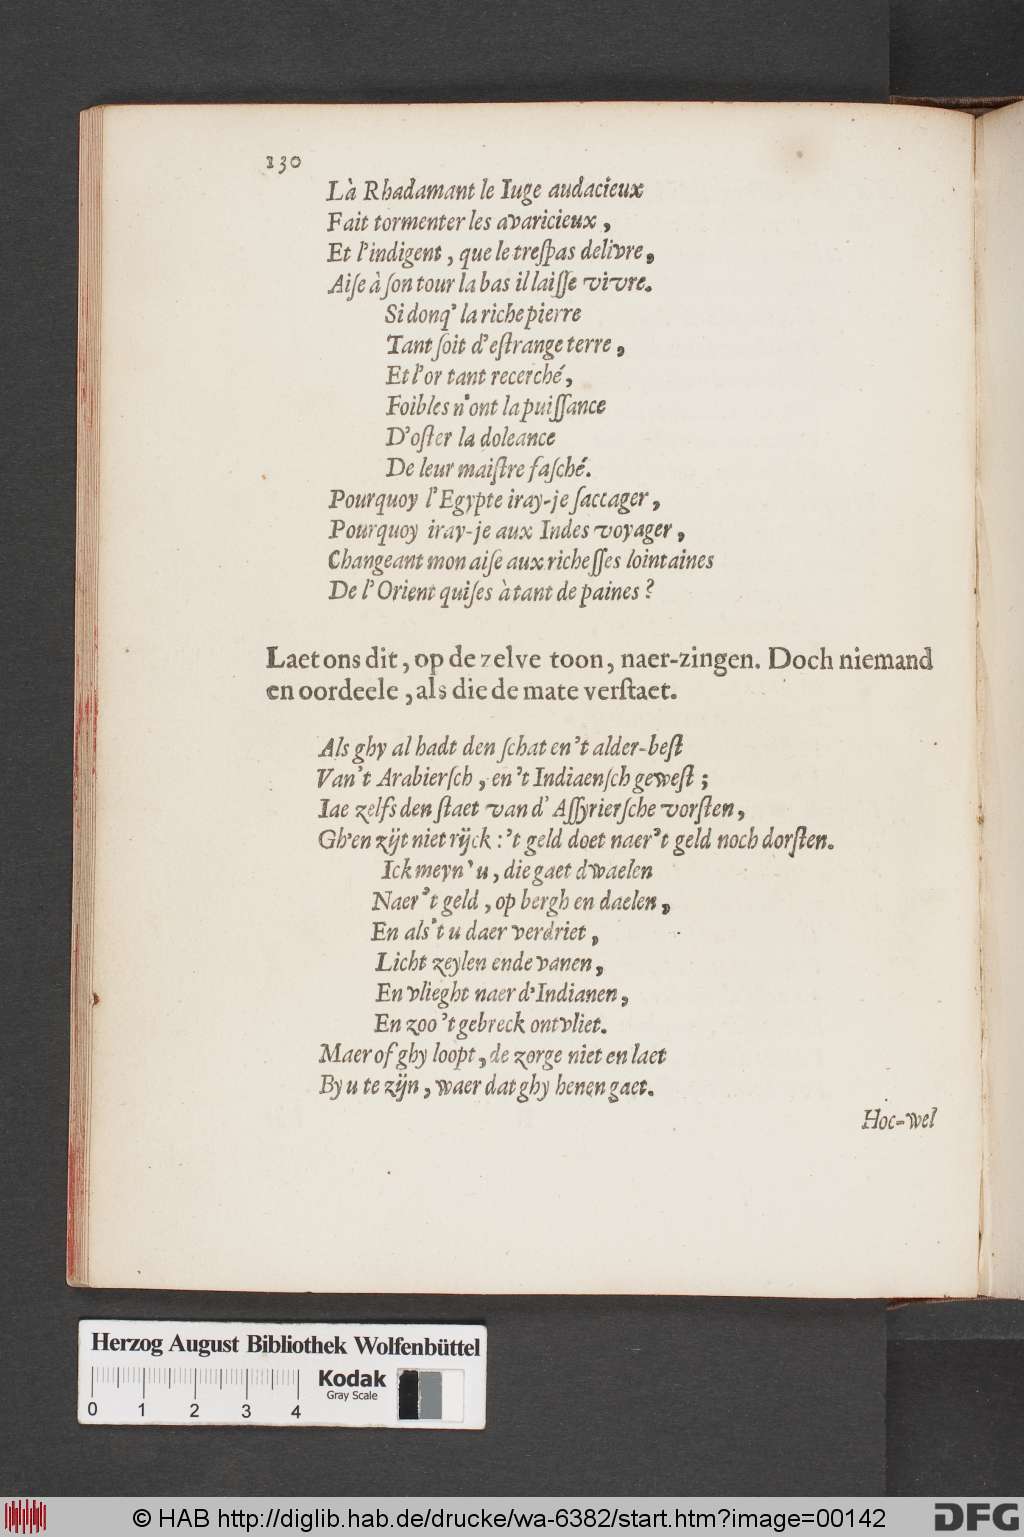 130
Là Rhadamant le Iuge audacieux
Fait tormenter les avaricieux,
Et l'indigent, que le treſpas delivre,
Aiſe à ſon tour la bas il laiſſe vivre.
Si donq' la riche pierre
Tant ſoit d'eſtrange terre,
Et l'or tant recerché,
Foibles n'ont la puiſſance
D'oſter la doleance
De leur maiſtre faſché.
Pourquoy l'Egypte iray-je ſaccager,
Pourquoy iray-je aux Indes voyager,
Changeant mon aiſe aux richeſſes lointaines
De l'Orient quiſes à tant de paines?
Laet ons dit, op de zelve toon, naer-zingen. Doch niemand
en oordeele, als die de mate verſtaet.
Als ghy al hadt den ſchat en't alder-beſt
Van't Arabierſch, en't Indiaenſch geweſt;
Iae zelfs den ſtaet van d'Aſſyrierſche vorſten,
Gh'en zijt niet rijck: 't geld doet naer't geld noch dorſten.
Ick meyn' u, die gaet dwaelen
Naer't geld, op bergh en daelen,
En als't u daer verdriet,
Licht zeylen ende vanen,
En vlieght naer d'Indianen,
En zoo 't gebreck ontvliet.
Maer of ghy loopt, de zorge niet en laet
By u te zijn, waer dat ghy henen gaet.
Hoc-wel
Herzog August Bibliothek Wolfenbüttel
Kodak
Gray Scale
0 1 2 3 4
© HAB http://diglib.hab.de/drucke/wa-6382/start.htm?image=00142
DFG